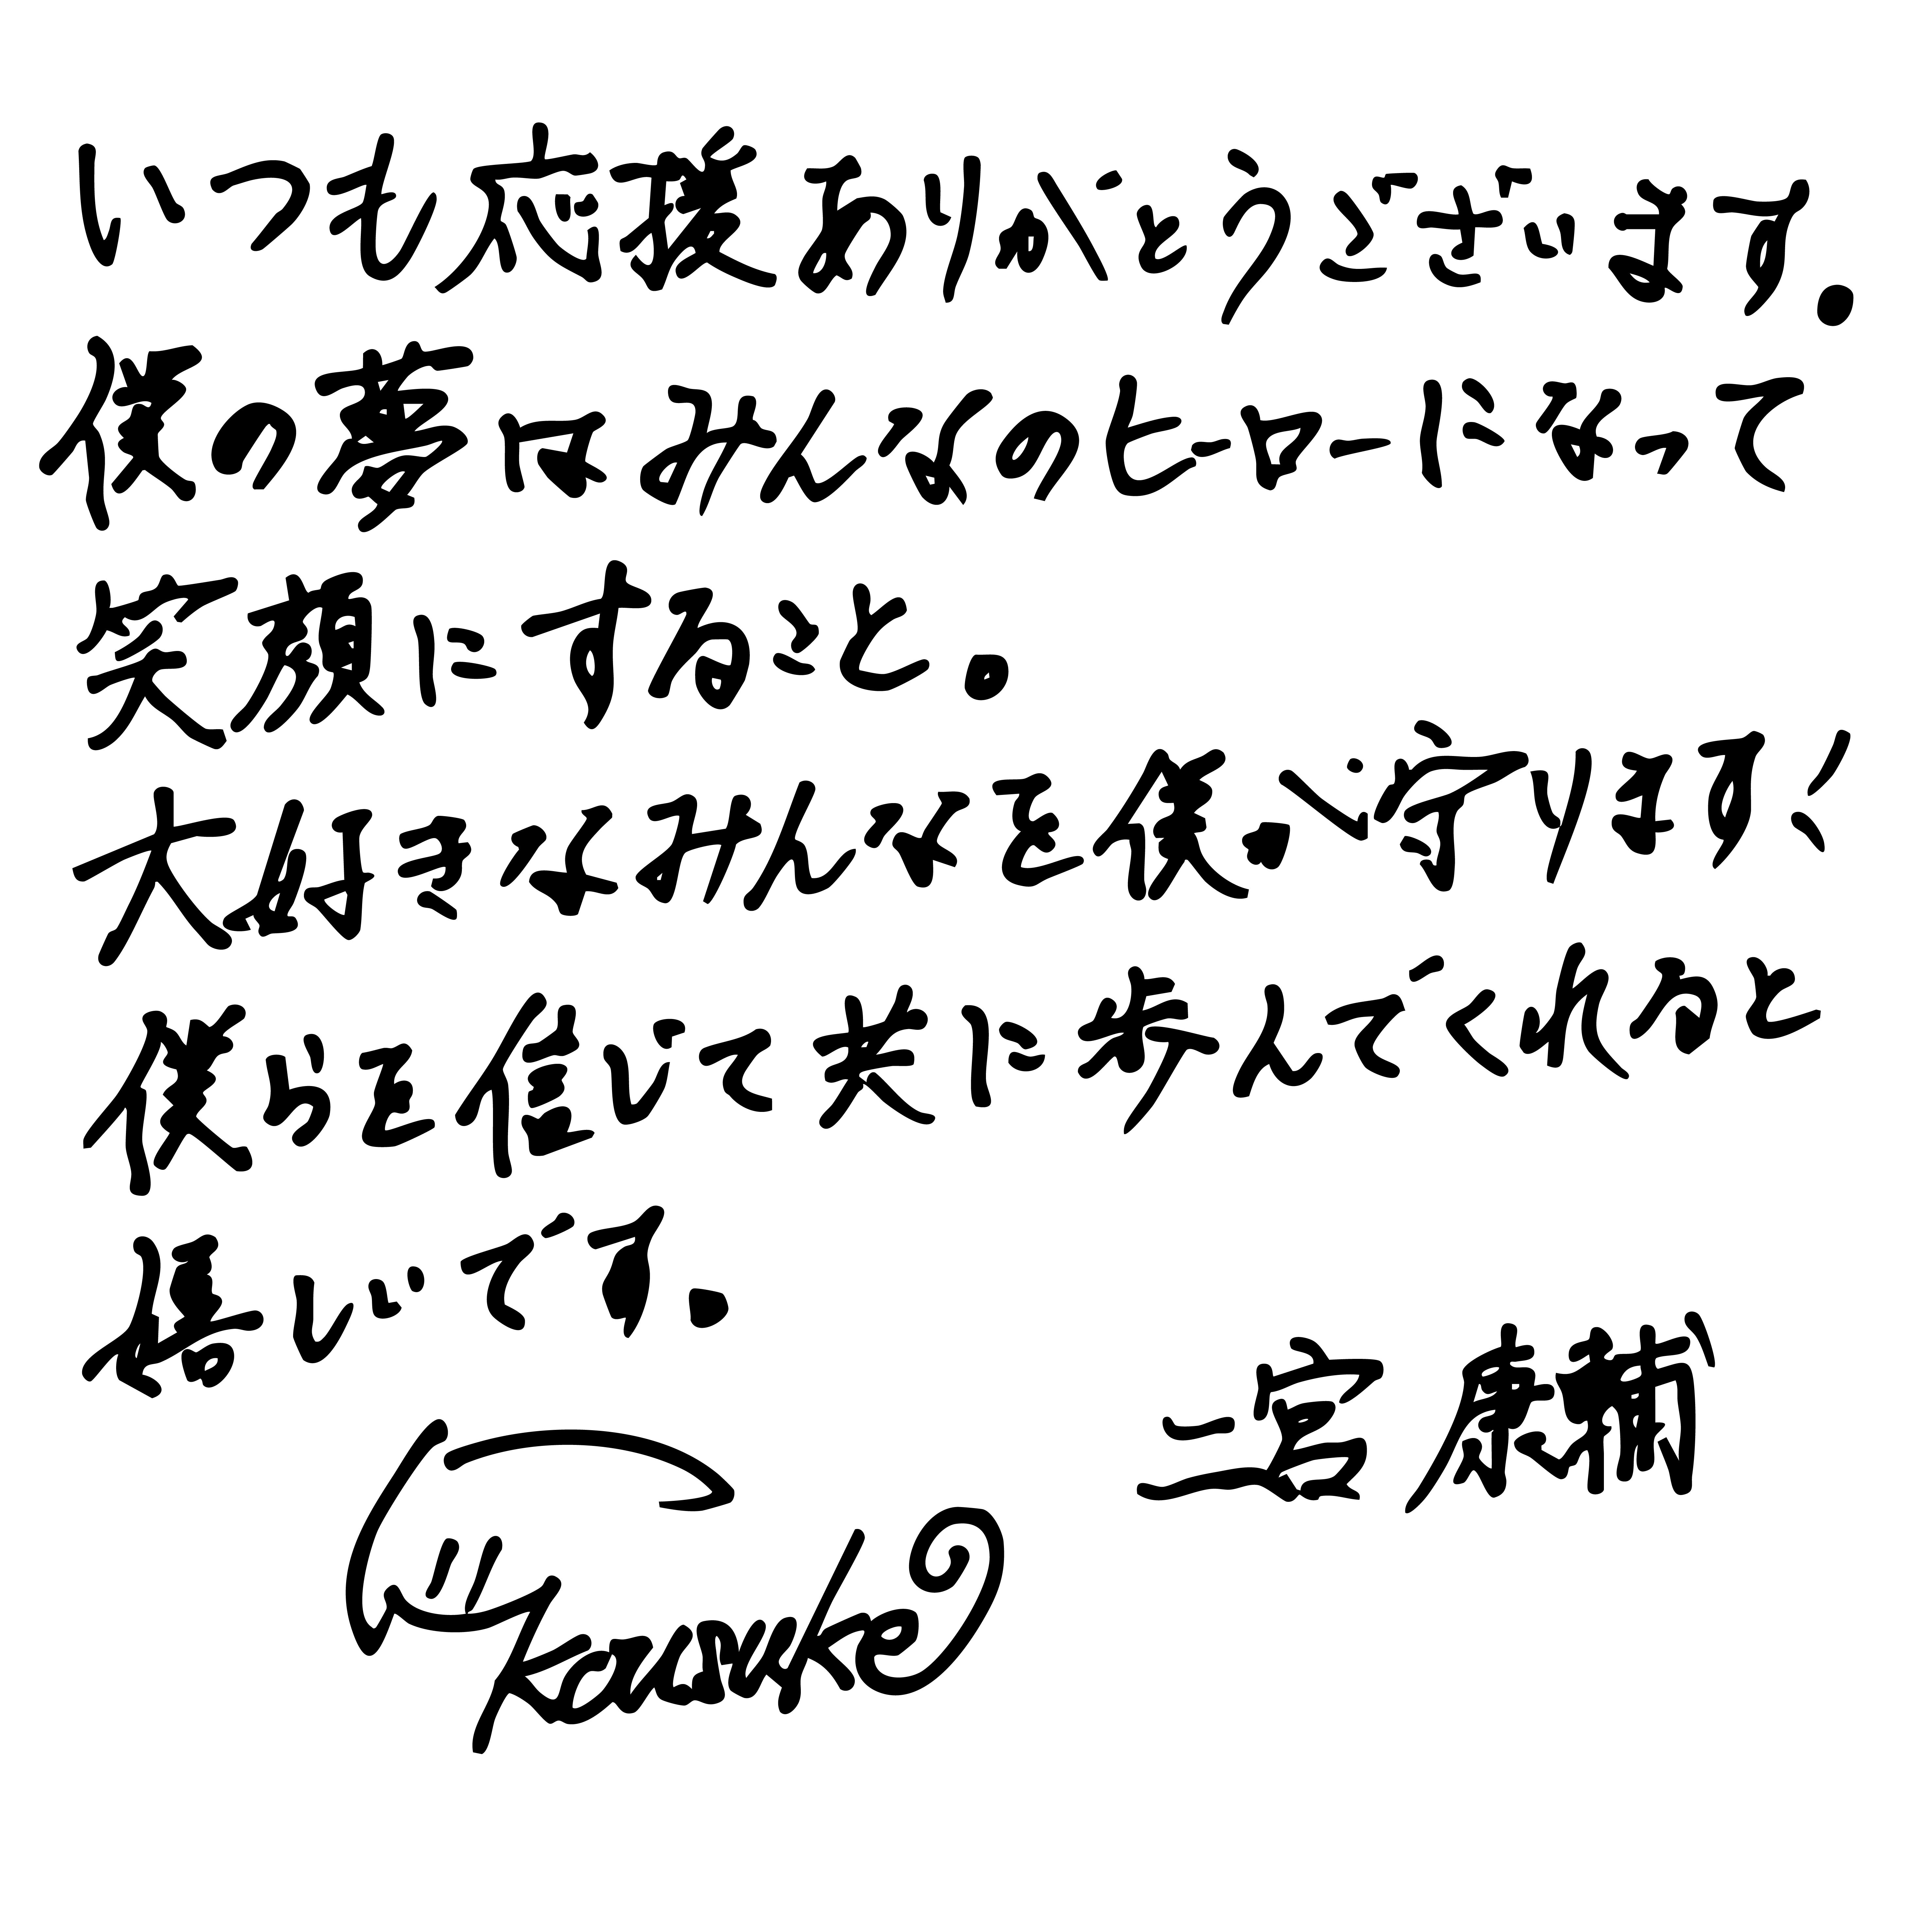 いつも応援ありがとうございます。
僕の夢はみんなのヒーローになって
笑顔にすること。
大好きなみんなを美心で守り抜,
僕が道を作るので共に歩んでくれると
嬉しいです。
宮 康輔
Kousuke